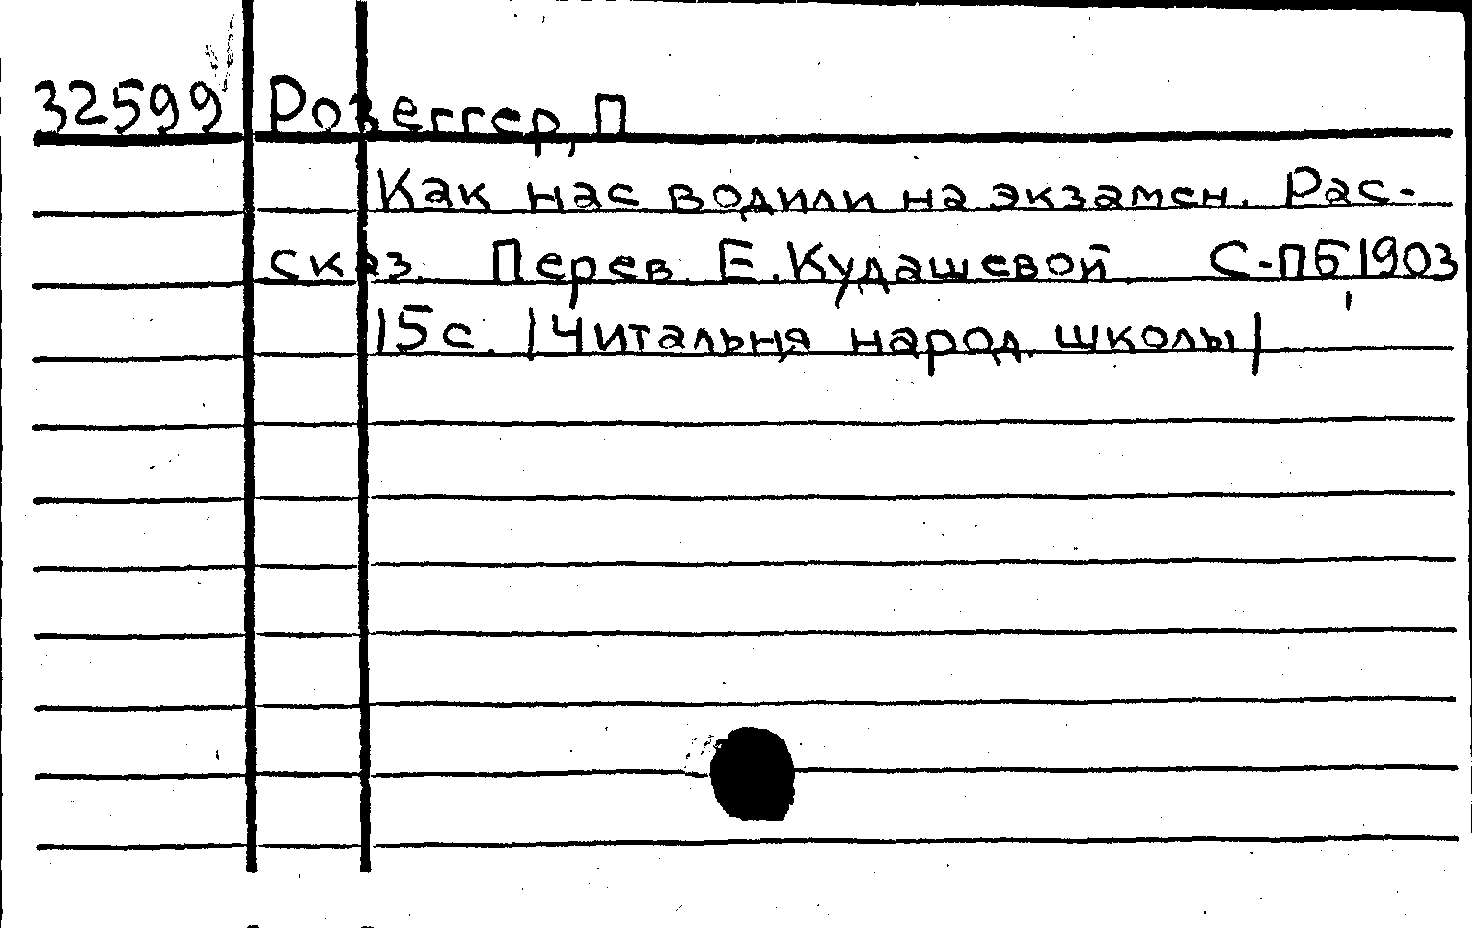 32599 Розеггер, П
Как нас водили на экзамен. Рас-
сказ. Перев. Е. Кудашевой С-ПБ 1903
15 с. |Читальня народ. школы|